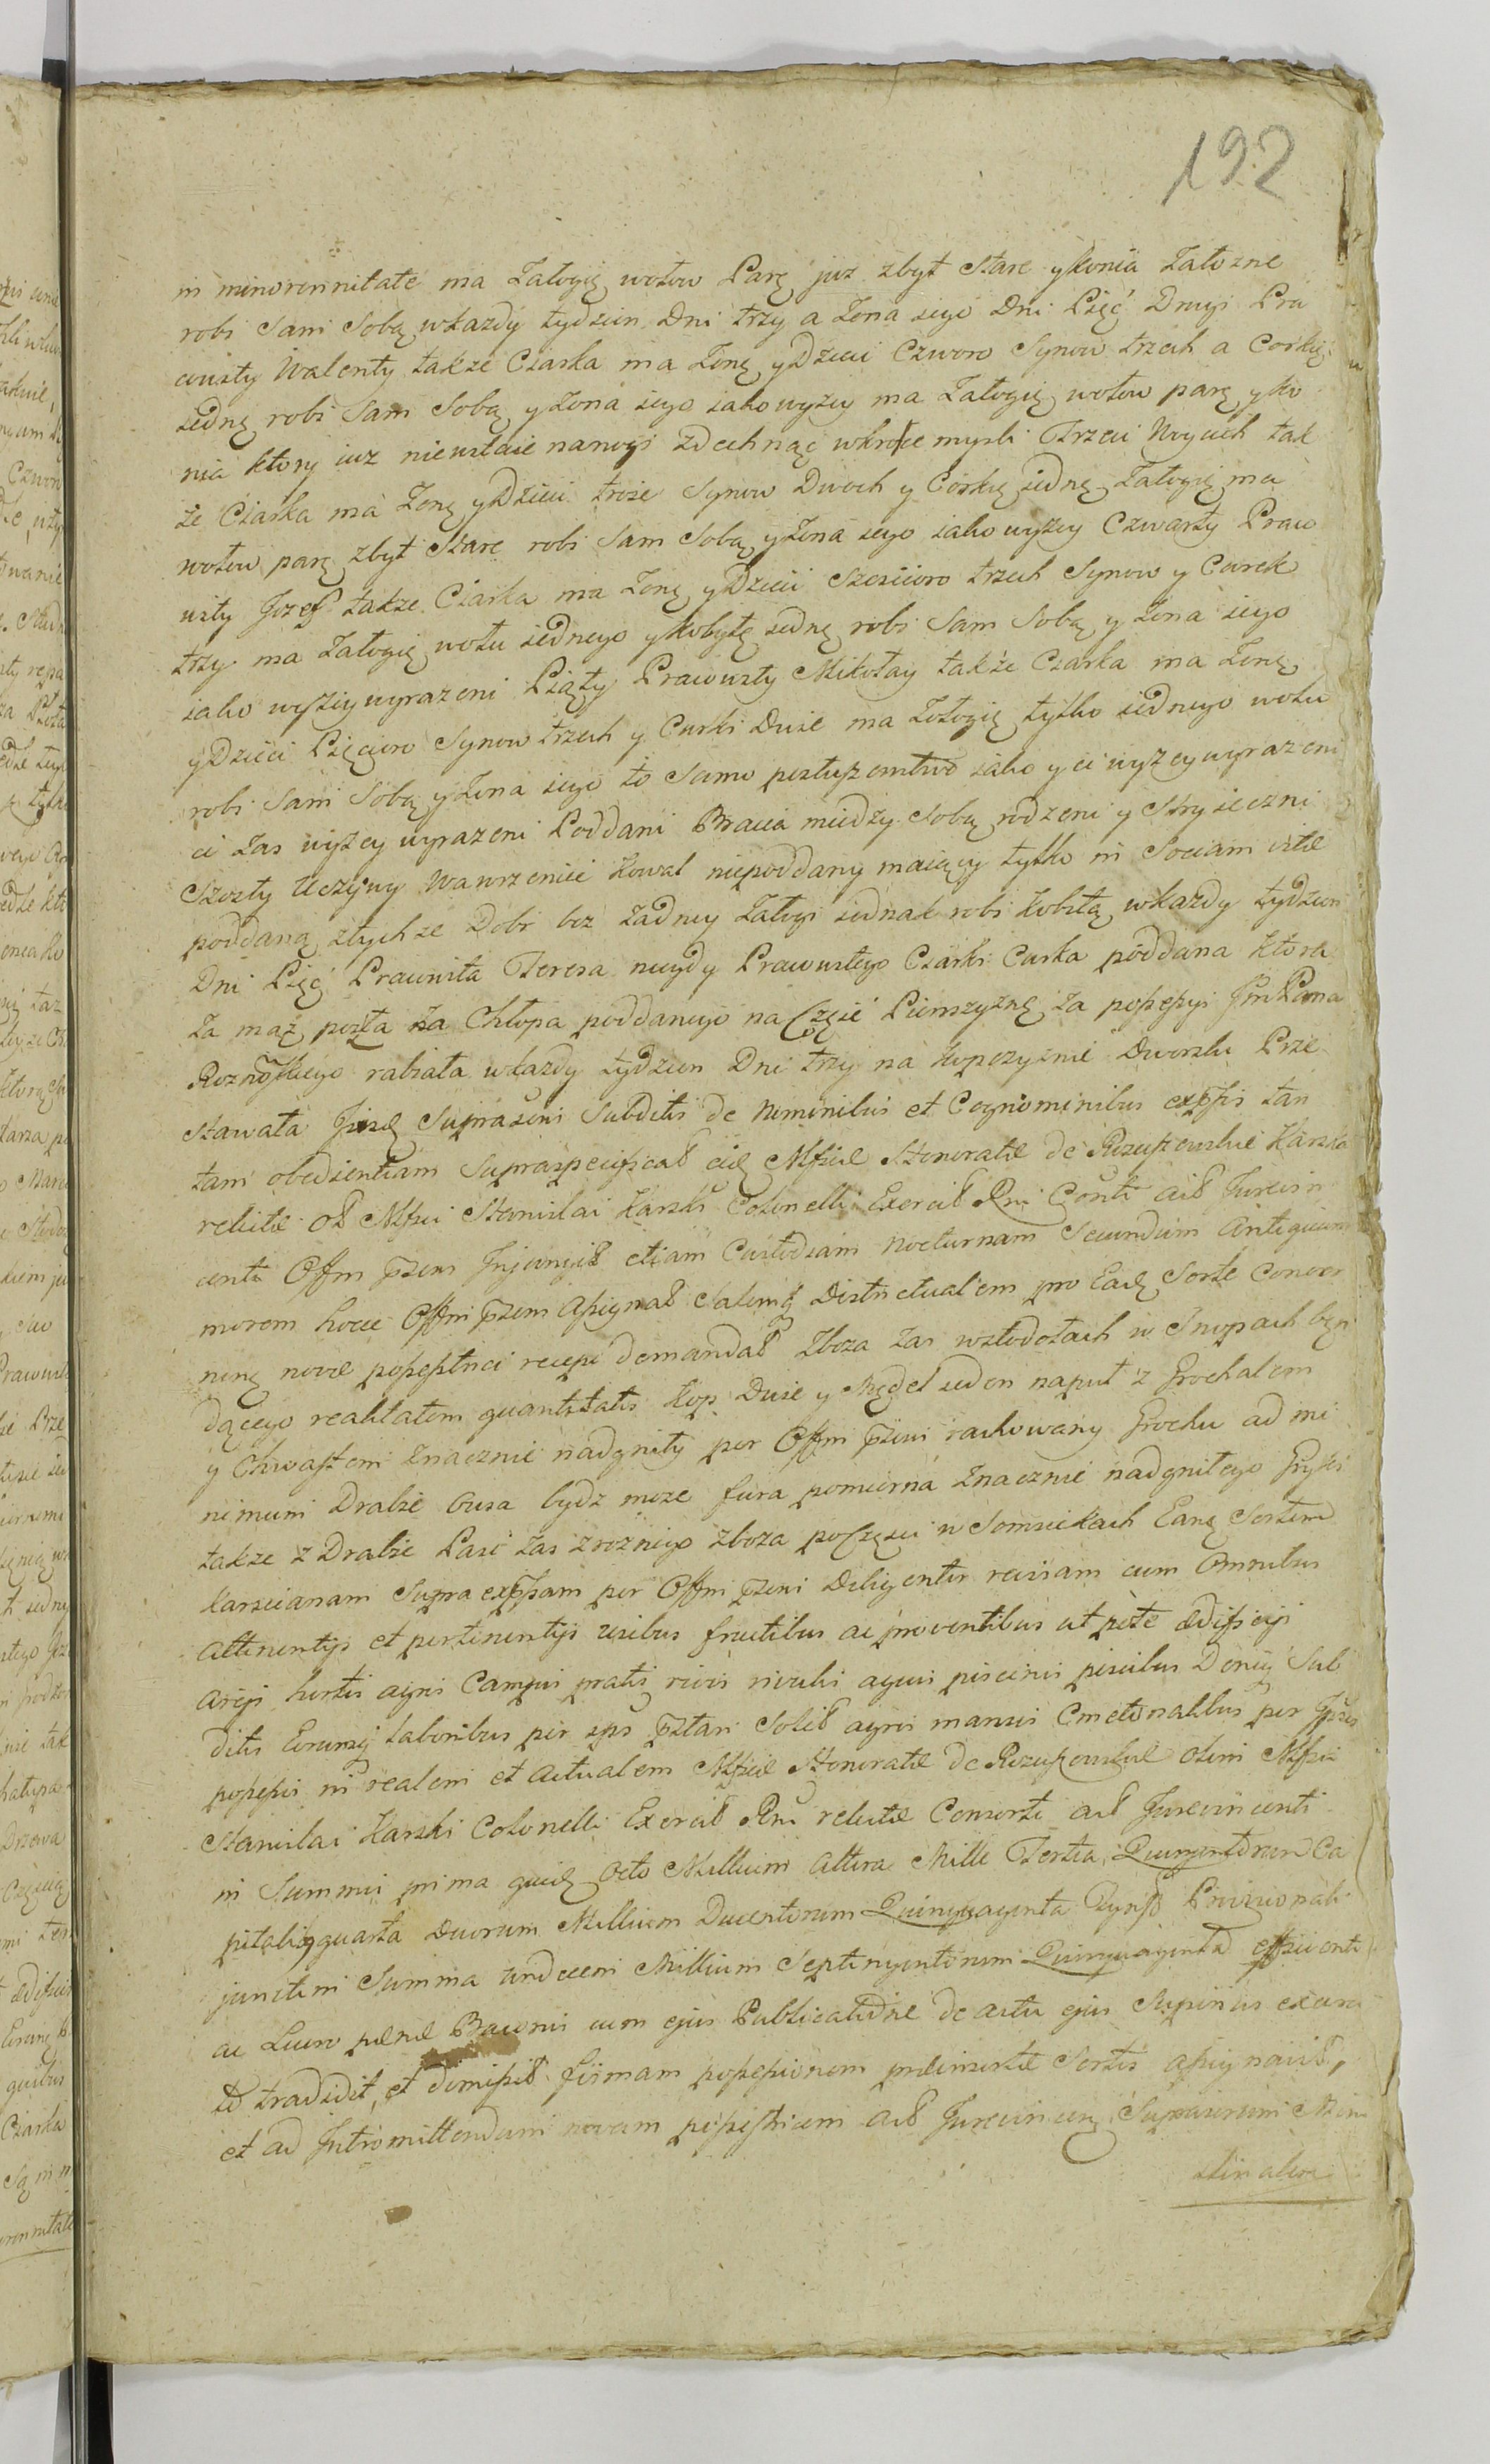 192
in minorennitate ma Załogię wołow Parę juz zbyt stare y konia Załozne
robi Sam Sobą w kazdy tydzien Dni trzy a Zona iego Dni Pięć Drugi Pra
wusty Walenty takze Czarka ma Zonę y Dzieci Czworo Synow trzech a Corkię
iednę robi Sam Sobą y Zona iego iako wyzey ma Załogię wołow parę y ko
nia ktory iuz niewstaie na nogi zdechnąc wkrotce mysli Trzeci Woyciech tak
ze Czarka ma Zonę y Dzieci troie Synow Dwoch y Corkię iednę Załogię ma
wołow parę zbyt Stare robi Sam Sobą y Zona iego iako wyzey Czwarty Praw
usty Jozef takze Czarka ma Zonę y Dzieci Szescioro trzech Synow y Corek
trzy ma Załogię wołu iednego y Kobyłę iednę robi Sam Sobą y Zona iego
iako wyzey wyrazeni Piąty Prawusty Mikołay takze Czarka ma Zonę
y Dzieci Pięcioro Synow trzech y Curki Duie ma Załogię tylko iednego wołu
robi Sam Sobą y Zona iego to Samo iako y ci wyzey wyrazeni
ci zas wyzey wyrazeni Poddani Bracia miedzy Sobą rodzeni y Stryieczni
Szosty Uczciwy Wawrzeniec Kowal niepoddany maiący tylko in Sociam vitæ
poddaną z tychze Dobr bez zadney Załogi iednak robi Kobitą w kazdy tydzien
Dni Pięć Prawuita Teresa niegdy Prawustego Czarki Curka poddana ktora
za mąz poszła za Chłopa poddanego na Częsć Pierszyznę za possessyi Jm Pana
Roznoskiego rabiała w kazdy tydzien Dni trzy na Kopczyznie Dworsku Prze
stawała Suprascris Subditis de Nominibus et Cognominibus expssis tan
tam obedientiam Supraspecificat eidę Mfcæ Honoratæ de Rzuszewskie Karska
relictæ ol Mfici Stanislai Karski Colonelli Exercit Rni Conti act Jurevin
centi Offm pzens Injungit etiam Custodiam nocturnam Secundum antiquum
morem hocce Offm pzens assignat Salemq Districtualem pro Eadę Sorte conver
nenę novæ possestrici recepi demandat Zboza zas w stodołach w Snopach bęn
dącego realitatem quantitatis Kop Duie y Mędel ieden naput z Grochalem
y Chwastem znacznie nadgnity per Offm pzens rachowany Grochu ad mi
nimum Drabie Gusa bydz moze fura pomierna znacznie nadgnitego Gryki
takze z Drabie Pasc zas zroznego zboza poczęsci w Somsiekach Eanę Sortem
Karscianam Supra expssam per Offm pzens Diligenter revisam cum Omnibus
attinentys et pertinentys usibus fructibus ac proventibus ut pote ædificys
areys hortis agris Campis pratis rivis rivulis aquis piscinis piscibus Deniq Sub
ditis Eorumq laboribus per eps pstari Solit agris mansis Cmetonalibus per Ipsos
possessis in realem et actualem Mfcæ Honoratæ de Rzuszewskie olim Mfci
Stanislai Karski Colonelli Exercit Rni relictæ Consorti act Jurevincenti
in Summis prima quidę Octo Millium altera Mille Tertia Quingentorum Ca
pitaliq quarta Duorum Millium Ducentorum Quinquaginta Provisionali
junctim Summa Undecem Millium Septingentorum Quinquaginta efficienti
ac Lucro pænæ Bannis cum ejus Publicatidne de actu ejus Superius exara
to tradidit, et dimisit firmam possessionem præinsertæ Sortis assignavit,
et ad Intromittendum novam possestricem act Jurevincenę Suprascrum Mini